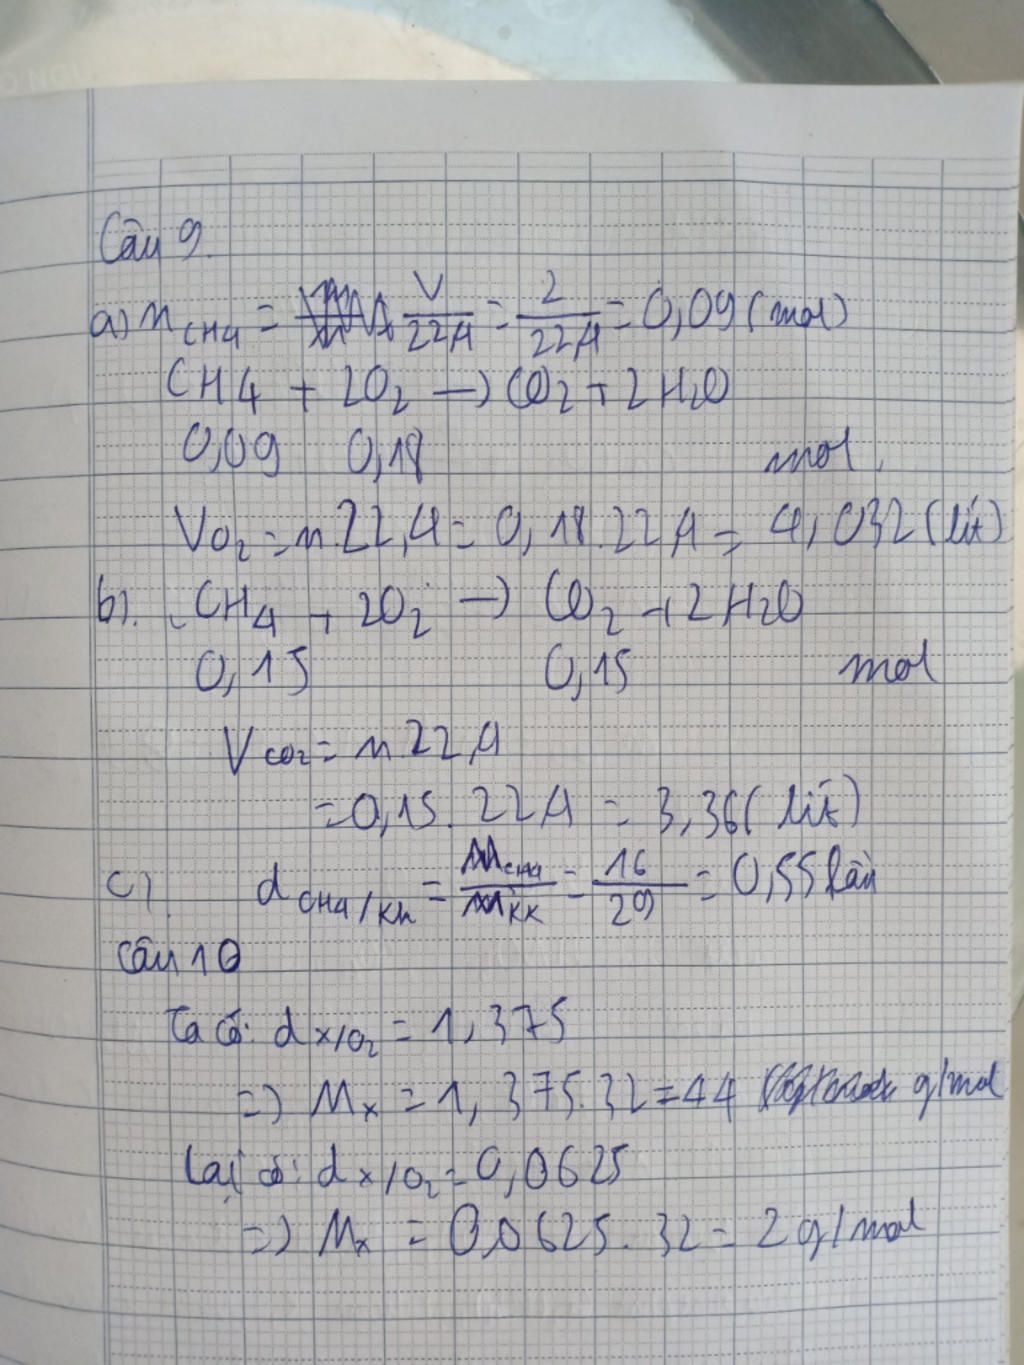 Câu 9.
a) n CH4 = V/22,4 = 2/22,4 = 0,09 (mol)
CH4 + 2O2 → CO2 + 2H2O
0,09 0,18 mol
VO2 = n.22,4 = 0,18.22,4 = 4,032 (lít)
b). CH4 + 2O2 → CO2 + 2H2O
0,15 0,15 mol
V CO2 = n.22,4
= 0,15.22,4 = 3,36 (lít)
c) d CH4/KK = M CH4/M KK = 16/29 = 0,55 lần
Câu 10
Ta có: d x/O2 = 1,375
=> Mx = 1,375.32 = 44 g/mol
Lại có: d x/O2 = 0,0625
=> Mx = 0,0625.32 = 2 g/mol